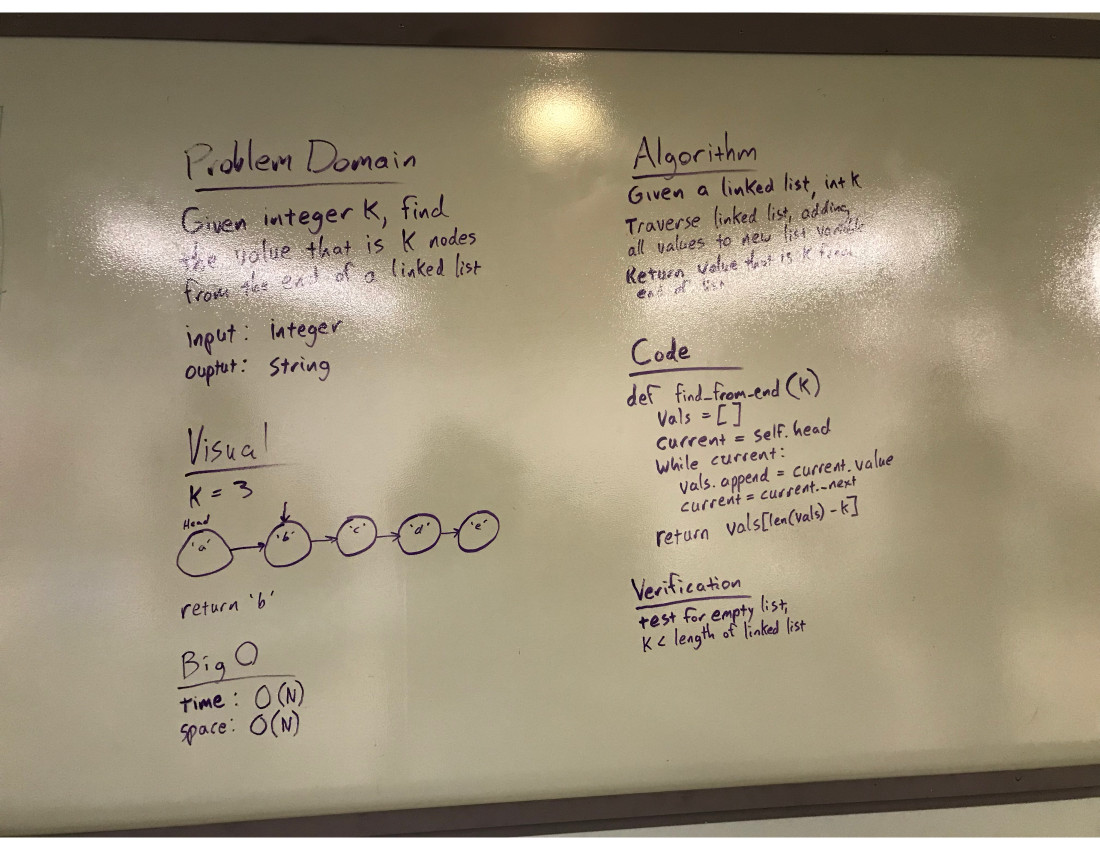 Problem Domain
Given integer K, find
the value that is K nodes
from the end of a linked list
input: integer
ouptut: string
Visual
K = 3
Head
'a' 'b' 'c' 'd' 'e'
return 'b'
Big O
time: O(N)
space: O(N)
Algorithm
Given a linked list, int K
Traverse linked list, adding
all values to new list variable
Return value that is K from
end of list
Code
def find_from_end(K)
vals = []
current = self.head
while current:
vals.append = current.value
current = current._next
return vals[len(vals) - k]
Verification
test for empty list,
K < length of linked list